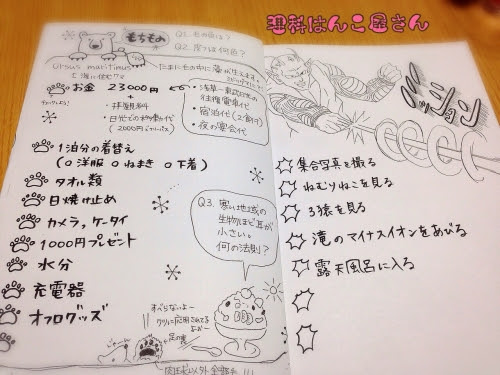 理科はんこ屋さん
もちもの
Q1. 毛の色は？
Q2. 皮フは何色？
Ursus maritimus
と海に住む？クマ
たまに毛の中に藻が生えます。
お金 23000円
チェックしよう！
+
・拝観料
・日光での移動代
(2000円
浅草―東武日光の
往復電車代
・宿泊代(2食付)
・夜の宴会代
1泊分の着替え
(○洋服 ○ねまき ○下着)
タオル類
日焼け止め
カメラ,ケータイ
1000円プレゼント
水分
充電器
オフログッズ
Q3. 寒い地域の
生物ほど耳が
小さい。
何の法則？
すべらないよー
足の裏
肉球以外全部毛!!!
ミッション
集合写真を撮る
ねむりねこを見る
3猿を見る
滝のマイナスイオンをあびる
露天風呂に入る